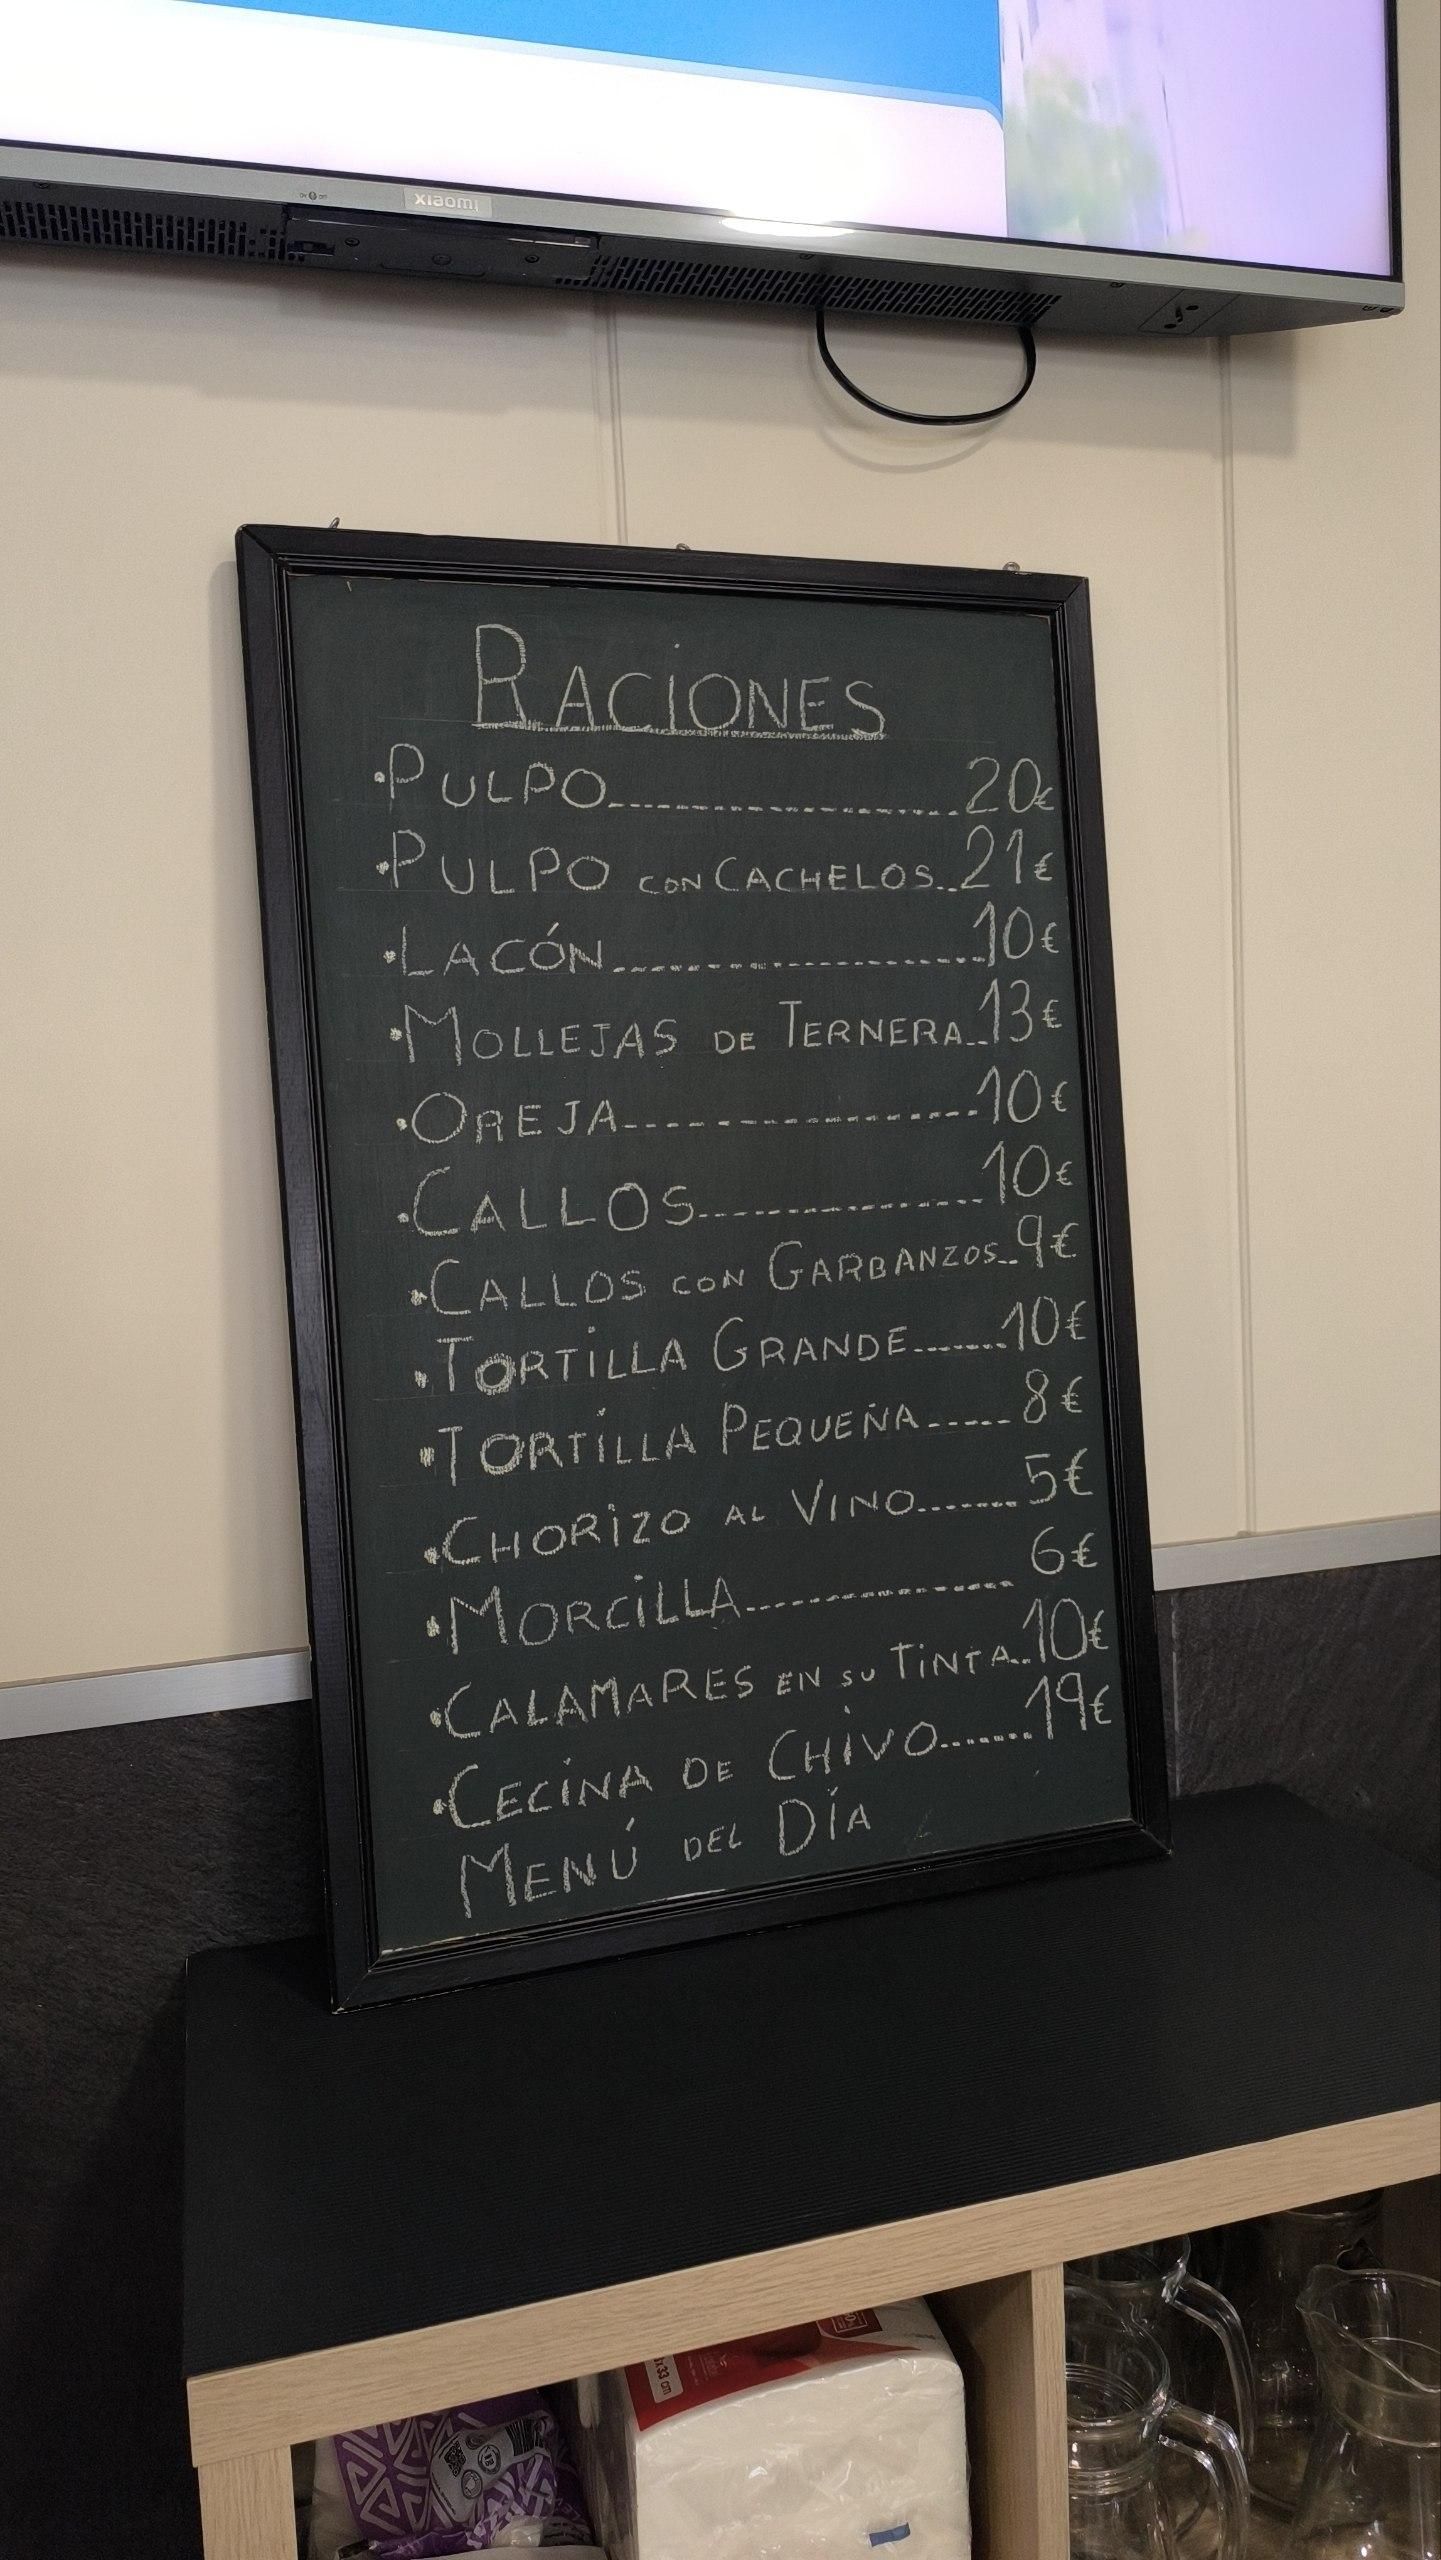 xiaomi
RACIONES
·PULPO.....................20€
·PULPO CON CACHELOS..21€
·LACÓN.....................10€
·MOLLEJAS DE TERNERA..13€
·OREJA.....................10€
·CALLOS.....................10€
·CALLOS CON GARBANZOS..9€
·TORTILLA GRANDE.......10€
·TORTILLA PEQUEÑA.....8€
·CHORIZO AL VINO.......5€
·MORCILLA.....................6€
·CALAMARES EN SU TINTA..10€
·CECINA DE CHIVO.......19€
MENÚ DEL DÍA